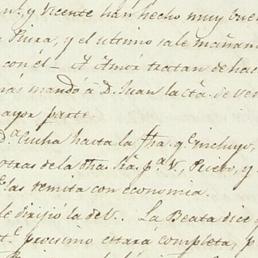 y Vicente han hecho muy bue
Riera, y el ultimo sale mañan
con él_ A Amor tratan de hac
mandó a D. Juan la cta. de ven
ayor parte.
D.ª hasta la fha. y incluyo,
otras de la fha. p.ª V., Riera, y
las remita con economia.
le dirijió la de V.. La Beata dice q
procsimo estará completa, p